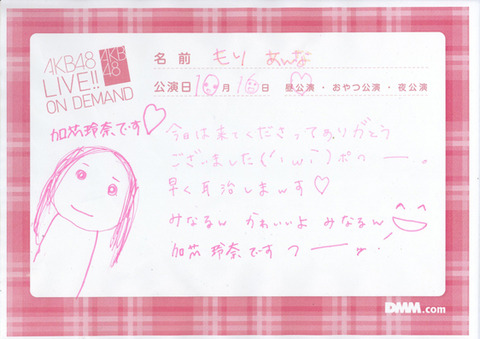 AKB48
LIVE!!
ON DEMAND
AKB
48
名前 もり あんな
公演日 10月16日 昼公演・おやつ公演・夜公演
加芯玲奈です♡
今日は来てくださってありがとう
ございました(´・ω・`)ポへーー。
早く 耳治しまぁす♡
みなるん かわいいよ みなるん
加芯 玲奈です
DMM.com